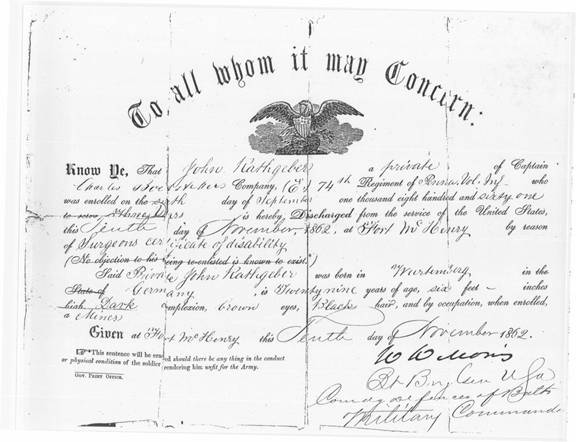 To all whom it may Concern:
Know Ye, That John Rathgeber a private of Captain
Charles Company, (E.) 74th Regiment of Penna. Vol. Inf who
was enrolled on the day of September one thousand eight hundred and sixty one
to serve Three years is hereby, Discharged from the service of the United States,
this Tenth day of November, 1862, at Fort McHenry by reason
of Surgeons certificate of disability.
(No objection to his being re-enlisted is known to exist.)
Said Private John Rathgeber was born in in the
State of Germany, is Twenty nine years of age, six feet – inches
high, Dark complexion, brown eyes, Black hair, and by occupation, when enrolled,
a Miner
Given at Fort McHenry this Tenth day of November 1862.
☞This sentence will be erased should there be any thing in the conduct
or physical condition of the soldier rendering him unfit for the Army.
Gov. Print Office.
W W Morris
Bt Brig Gen
Comdg
Military Commander